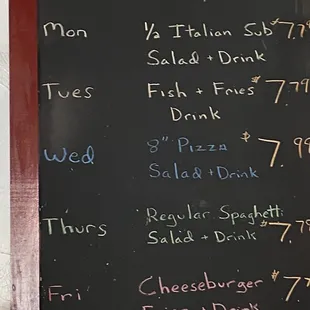 Mon ½ Italian Sub $7.79
Salad + Drink
Tues Fish + Fries $7.79
Drink
Wed 8" Pizza $7.99
Salad + Drink
Thurs Regular Spaghetti
Salad + Drink $7.79
Fri Cheeseburger $7.7
Drink